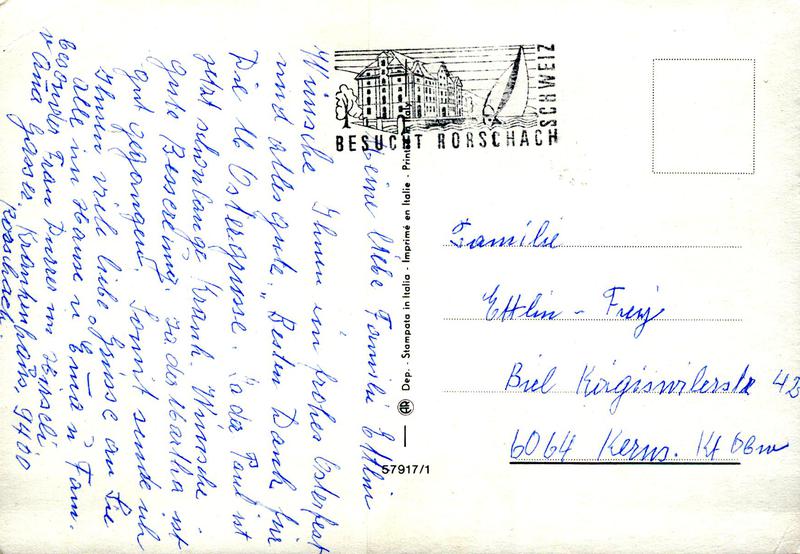 Meine liebe Familie Ettlin
Wünsche Ihnen ein frohes Osterfest
und alles gute. Besten Dank für
Die lb Ostergrüsse. Ja der Paul ist
jetzt schon lange Krank. Wünsche
gute Besserung. Ja der Martha ist
gut gegangen. Somit sende ich
Ihnen viele liebe Grüsse an Sie
alle im Hause u. Ema u Fam.
besonder Frau Durrer im Hirseli
v Ana Gasser, Krankenhaus, 9400
Rorschach.
BESUCHT RORSCHACH
SCHWEIZ
Dep. - Stampata in Italia - Imprimé en Italie - Printed in Italy
57917/1
Familie
Ettlin - Frey
Biel Kägiswilerstr 42
6064 Kerns. Kt Obw